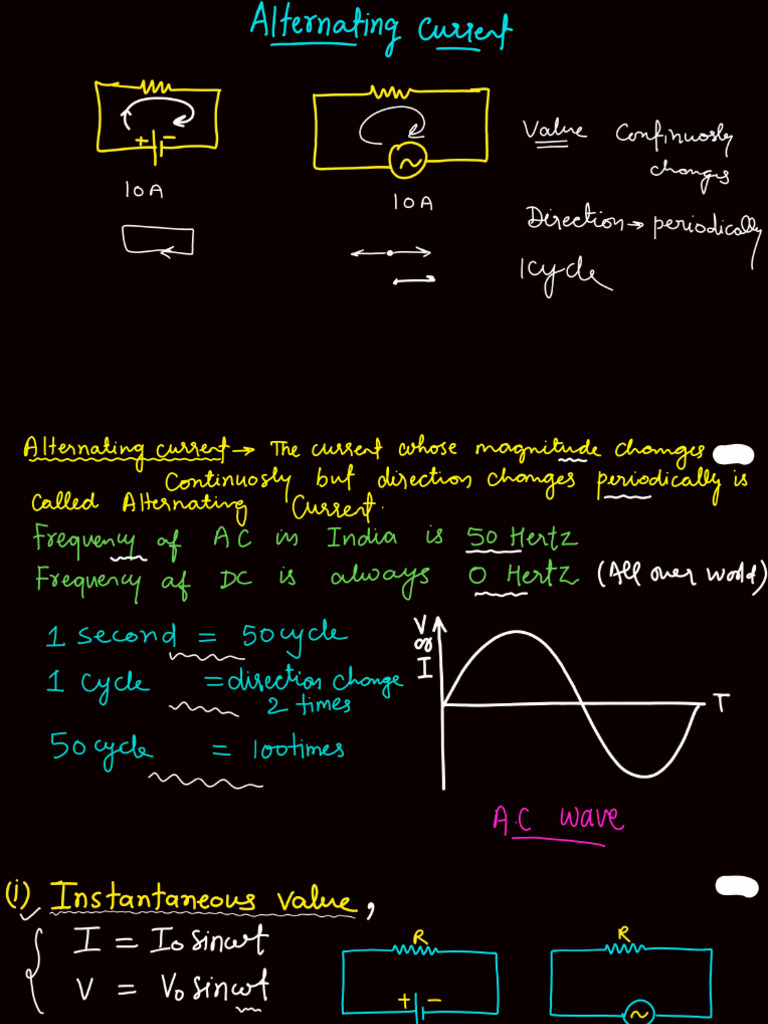 Alternating Current
+ -
10A
~
10A
Value Continuosly
changes
Direction → periodically
1cycle
Alternating current → The current whose magnitude changes
Continuosly but direction changes periodically is
called Alternating Current.
Frequency of AC in India is 50 Hertz
Frequency of DC is always 0 Hertz (All over world)
1 second = 50cycle
1 Cycle = direction change
2 times
50cycle = 100times
V
or
I
T
A.C wave
(i) Instantaneous value,
I = I₀ sinωt
V = V₀ sinωt
R
+ -
R
~